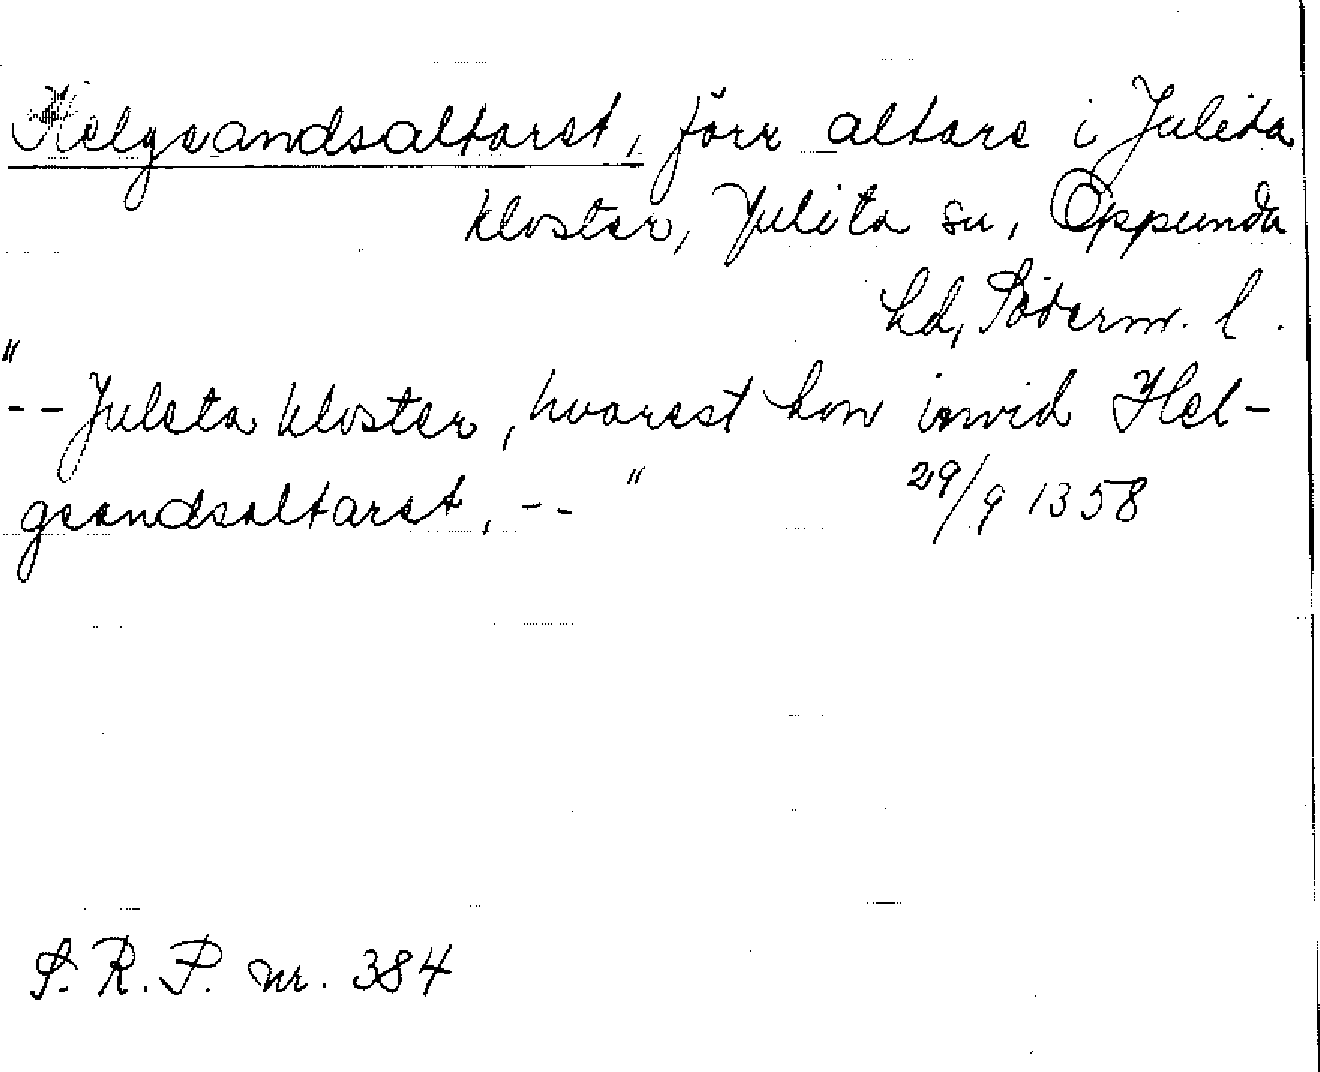 Helgeandsaltaret, förr altare i Julita
kloster, Julita sn, Oppunda
hd, Söderm. l.
"
-- Juleta kloster, hvarest hon invid Hel-
geandsaltaret, -- " 29/9 1358
S. R. P. nr. 384